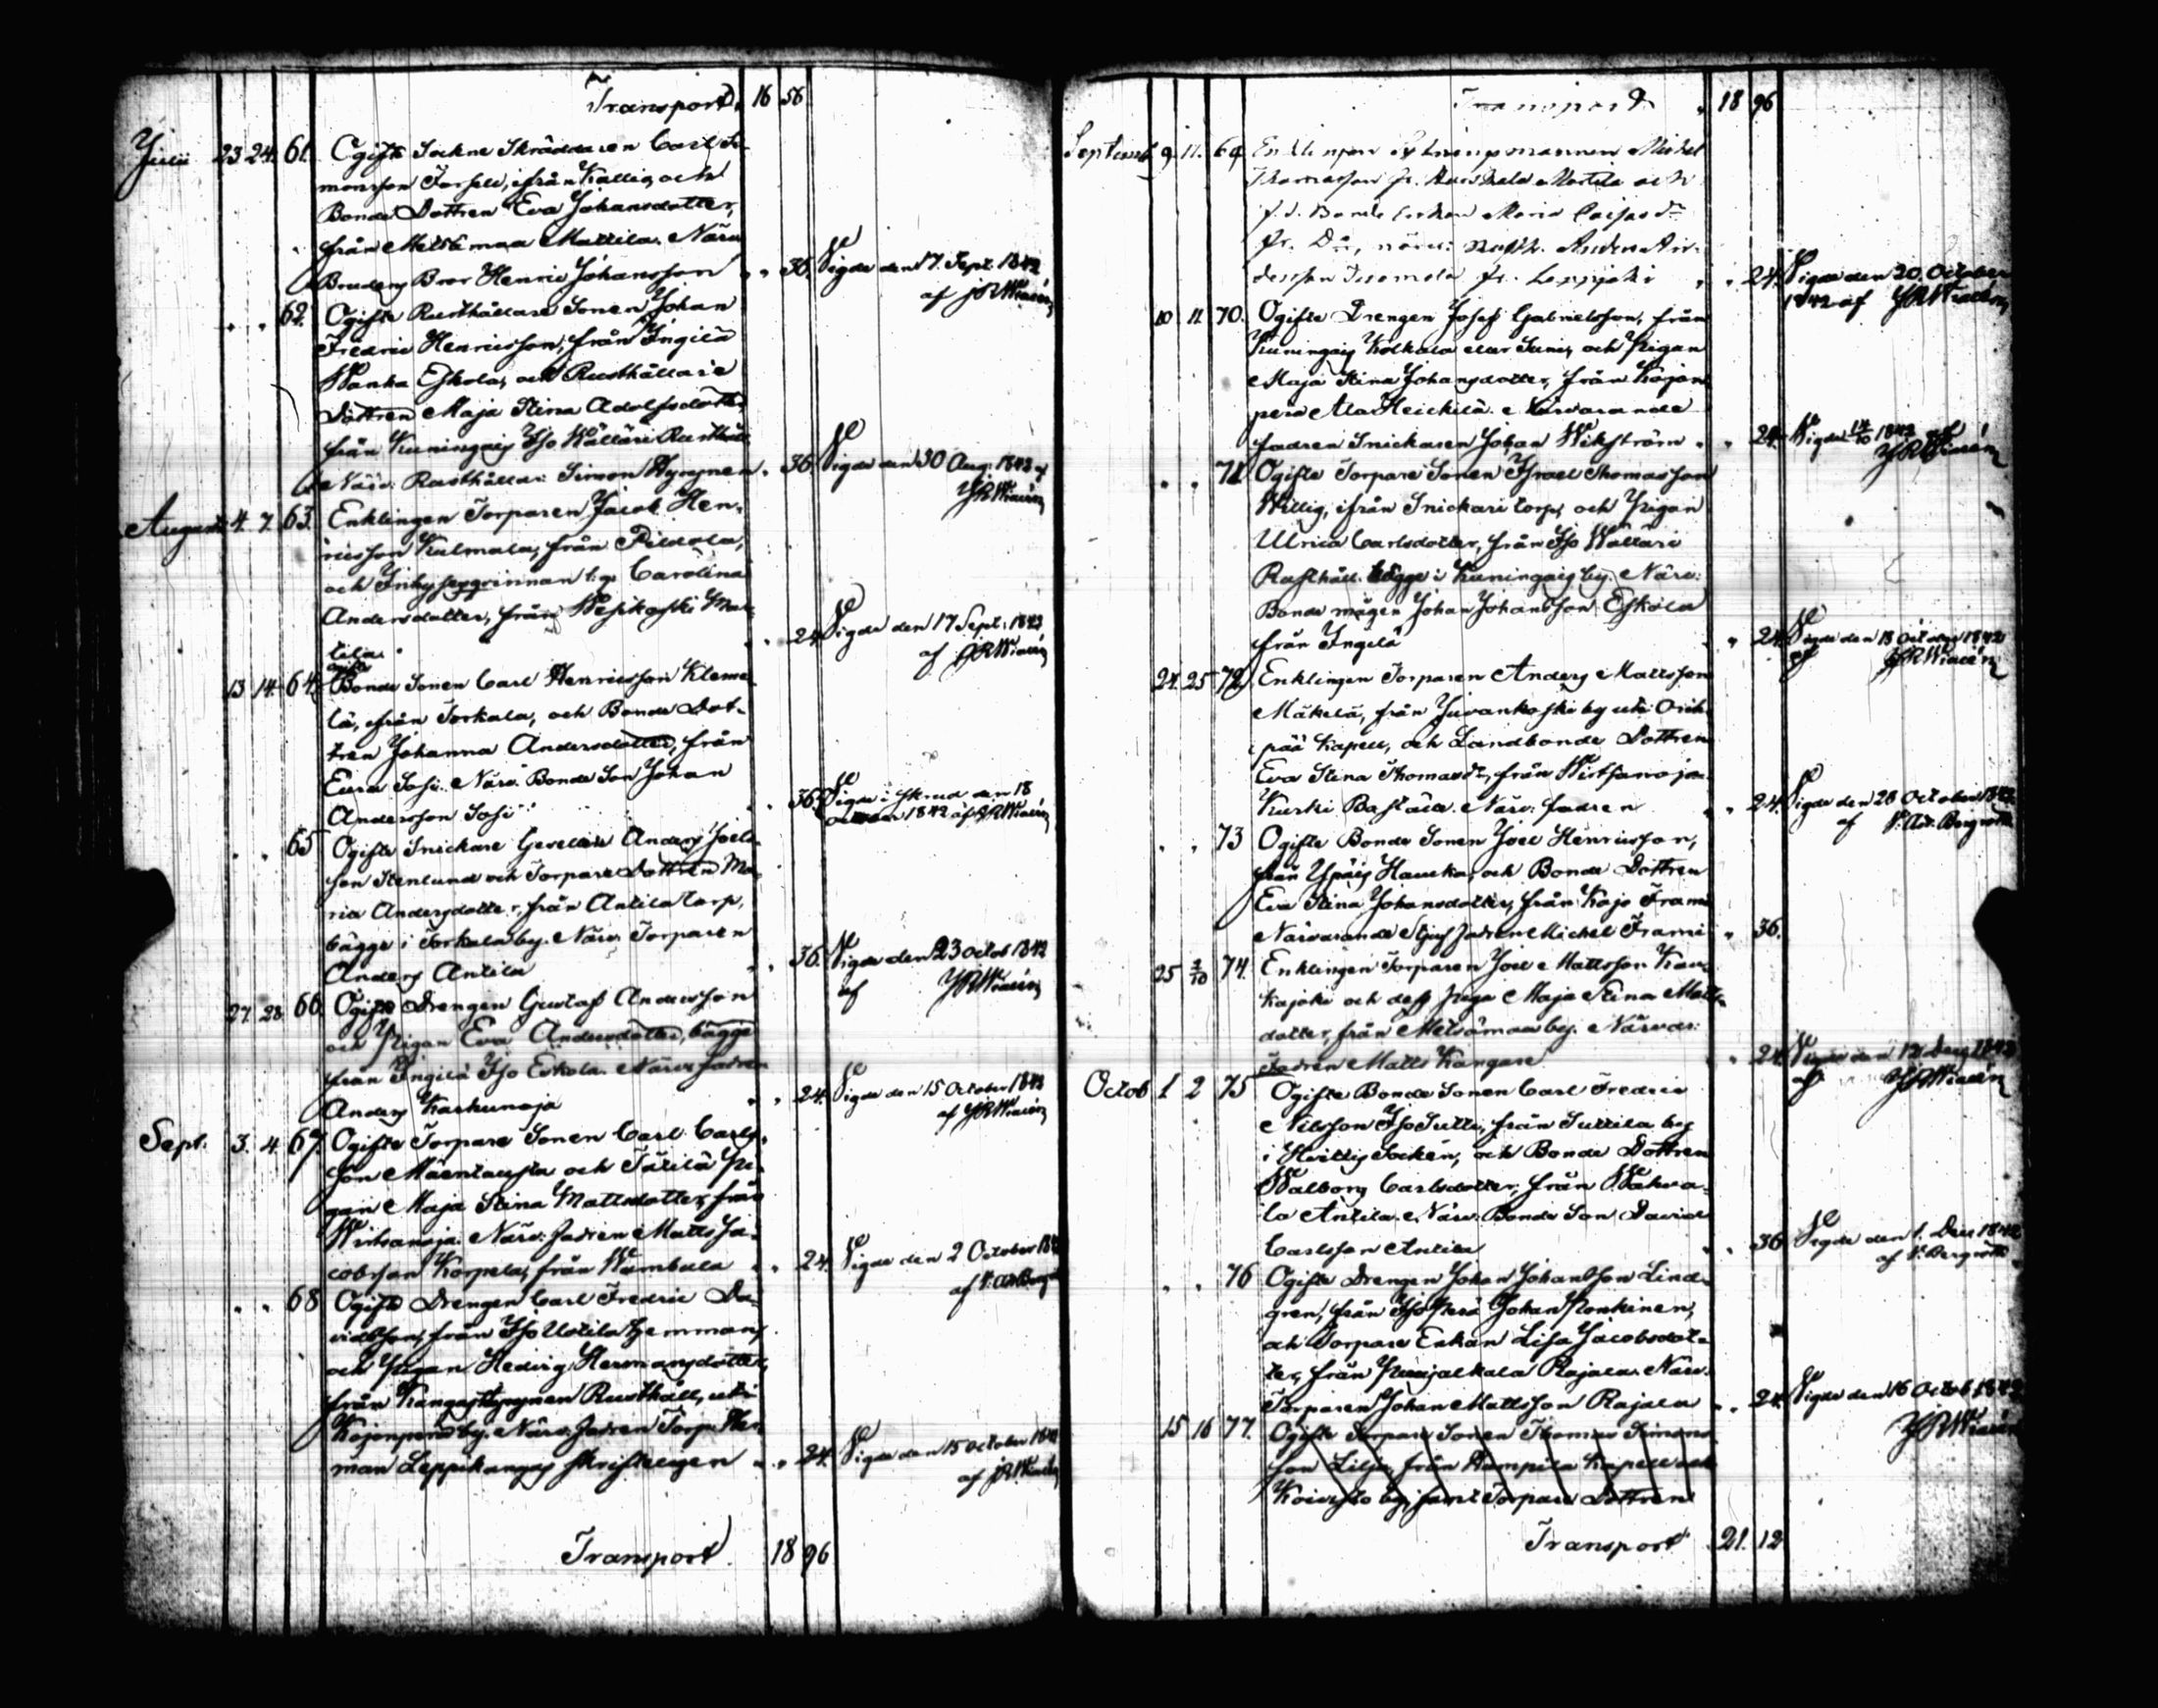 Transport. 16 56
Julii 23 24. 61. Ogifte Sockne Skräddaren Carl Si-
monsson Forsell, ifrån Kallis, och
Bonde Dottren Eva Johansdotter,
från Metsämaa Mattila. Närv.
Brudens Bror Henric Johansson " " 36. Vigde den 17. Sept. 1842
af J R Wirzén
" " 62. Ogifte Rusthållare Sonen Johan
Fredric Henricsson, från Ingilä
Wanha Eskola, och Rusthållare
Dottren Maja Stina Adolfsdotter,
från Kuningais Iso Wälläri Rusthåll
Närv: Rusthålln: Simon Hyrynen " 36. Vigde den 30 Aug: 1842 af
J R Wirzén
Augusti 4. 7. 63. Enklingen Torparen Jacob Hen-
ricsson Kulmala, från Pildola,
och Inhysegrinnan Carolina
Andersdotter, från Wesikoski Mat-
tila. " " 24. Vigde den 17 Sept: 1842
af J R Wirzén
13. 14. 64. ogifte Bonde Sonen Carl Henricsson Kleme-
lä, från Torkala, och Bonde Dot-
tren Johanna Andersdotter, från
Eura Sosi. Närv. Bonde Son Johan
Andersson Sosi " " 36. Vigde i den 18
1842 af J R Wirzén
" " 65 Ogifte Snickare Gesellen Anders Joels-
son Stenlund och Torpare Dottren Ma-
ria Andersdotter, från Antila Torp,
bägge i Torkala by. Närv. Torparen
Anders Antila " " 36. Vigde den 23 Octob 1842
af J R Wirzén
27. 28 66. Ogifte Drengen Gustaf Andersson
och Pigan Eva Andersdotter, bägge
från Ingilä Iso Eskola. Närv. fadren
Anders Karhunoja " " 24. Vigde den 15 October 1842
af J R Wirzén
Sept. 3. 4. 67. Ogifte Torpare Sonen Carl Carls-
son Mäentausta och Pi-
gan Maja Stina Mattsdotter, från
Wirtsanoja. Närv: fadren Matts Ja-
cobsson Korpela, från Wambula " " 24. Vigde den 2 October 1842
af
" " 68 Ogifte Drengen Carl Fredric Da-
vidsson, från Iso Uotila Hemman,
och Pigan Hedvig Hermansdotter,
från Kangas Hyrynen Rusthåll, uti
Kojonperä by. Närv. fadren Torp. Her-
man Leppikangas skrifteligen " " 24. Vigde den 15 October 1842
af J R Wirzén
Transport. 18 96
Transport " 18 96
Septemb. 9. 11. 69. Enklingen Michel
Thomasson fr. Mattila och
f.d. Bonde Enkan Maria
fr. närv:
fr. " " 24. Vigde den 20. October
1842 af J R Wirzén
10 11. 70. Ogifte Drengen Josef Gabrielsson, från
Kuningais Kolkala eller Suni, och Pigan
Maja Stina Johansdotter, från Kojon-
perä Ala Heickilä. Närvarande
fadren Snickaren Johan Wikström " " 24. Vigde 14/10 1842 af
J R Wirzén
" " 71 Ogifte Torpare Sonen Israel Thomasson
Willig, ifrån Snickari torp, och Pigan
Ulrica Carlsdotter, från Iso Wälläri
Rusthåll. bägge i Kuningais by. Närv:
Bonde mågen Johan Johansson Eskola
från Ingilä " 24. Vigde den 13 October 1842
af J R Wirzén
24. 25 72. Enklingen Torparen Anders Mattsson
Mäkelä, från Juvankoski by uti Orih-
pää Kapell, och Landbonde Dottren
Eva Stina Thomasdr, från Wirtsanoja
Kurki Baställ. Närv: fadren " 24. Vigde den 28 October 1842
af
" " 73 Ogifte Bonde Sonen Joel Henricsson,
från Ypäis Haucka, och Bonde Dottren
Eva Stina Johansdotter, från Kojo Frami
Närvarande Stjuf fadren Michel Frami " 36.
25 2/10 74. Enklingen Torparen Joel Mattsson
och dess Piga Maja Stina Matts-
dotter, från Metsämaa by. Närvar:
fadren Matts Kangare " 24. Vigde den 12 1842
af J R Wirzén
Octob 1 2 75 Ogifte Bonde Sonen Carl Fredric
Nilsson Iso Sutti, från Suttila by
i Hvittis Socken, och Bonde Dottren
Walborg Carlsdotter, från Wahva-
la Antila. Närv. Bonde Son David
Carlsson Antila " 36 Vigde den 1. Dec 1842
af
" " 76 Ogifte Drengen Johan Johansson Lind-
gren, från Iso Johan Ronkinen,
och Torpare Enkan Lisa Jacobsdot-
ter, från Rajala. Närv.
Torparen Johan Mattsson Rajala " " 24. Vigde den 16 Octob 1842
J R Wirzén
15 16 77. Ogifte Torpare Sonen Thomas Simons-
son Lilja, från Kapell och
Koivisto by, samt Torpare Dottren
Transport 21. 12